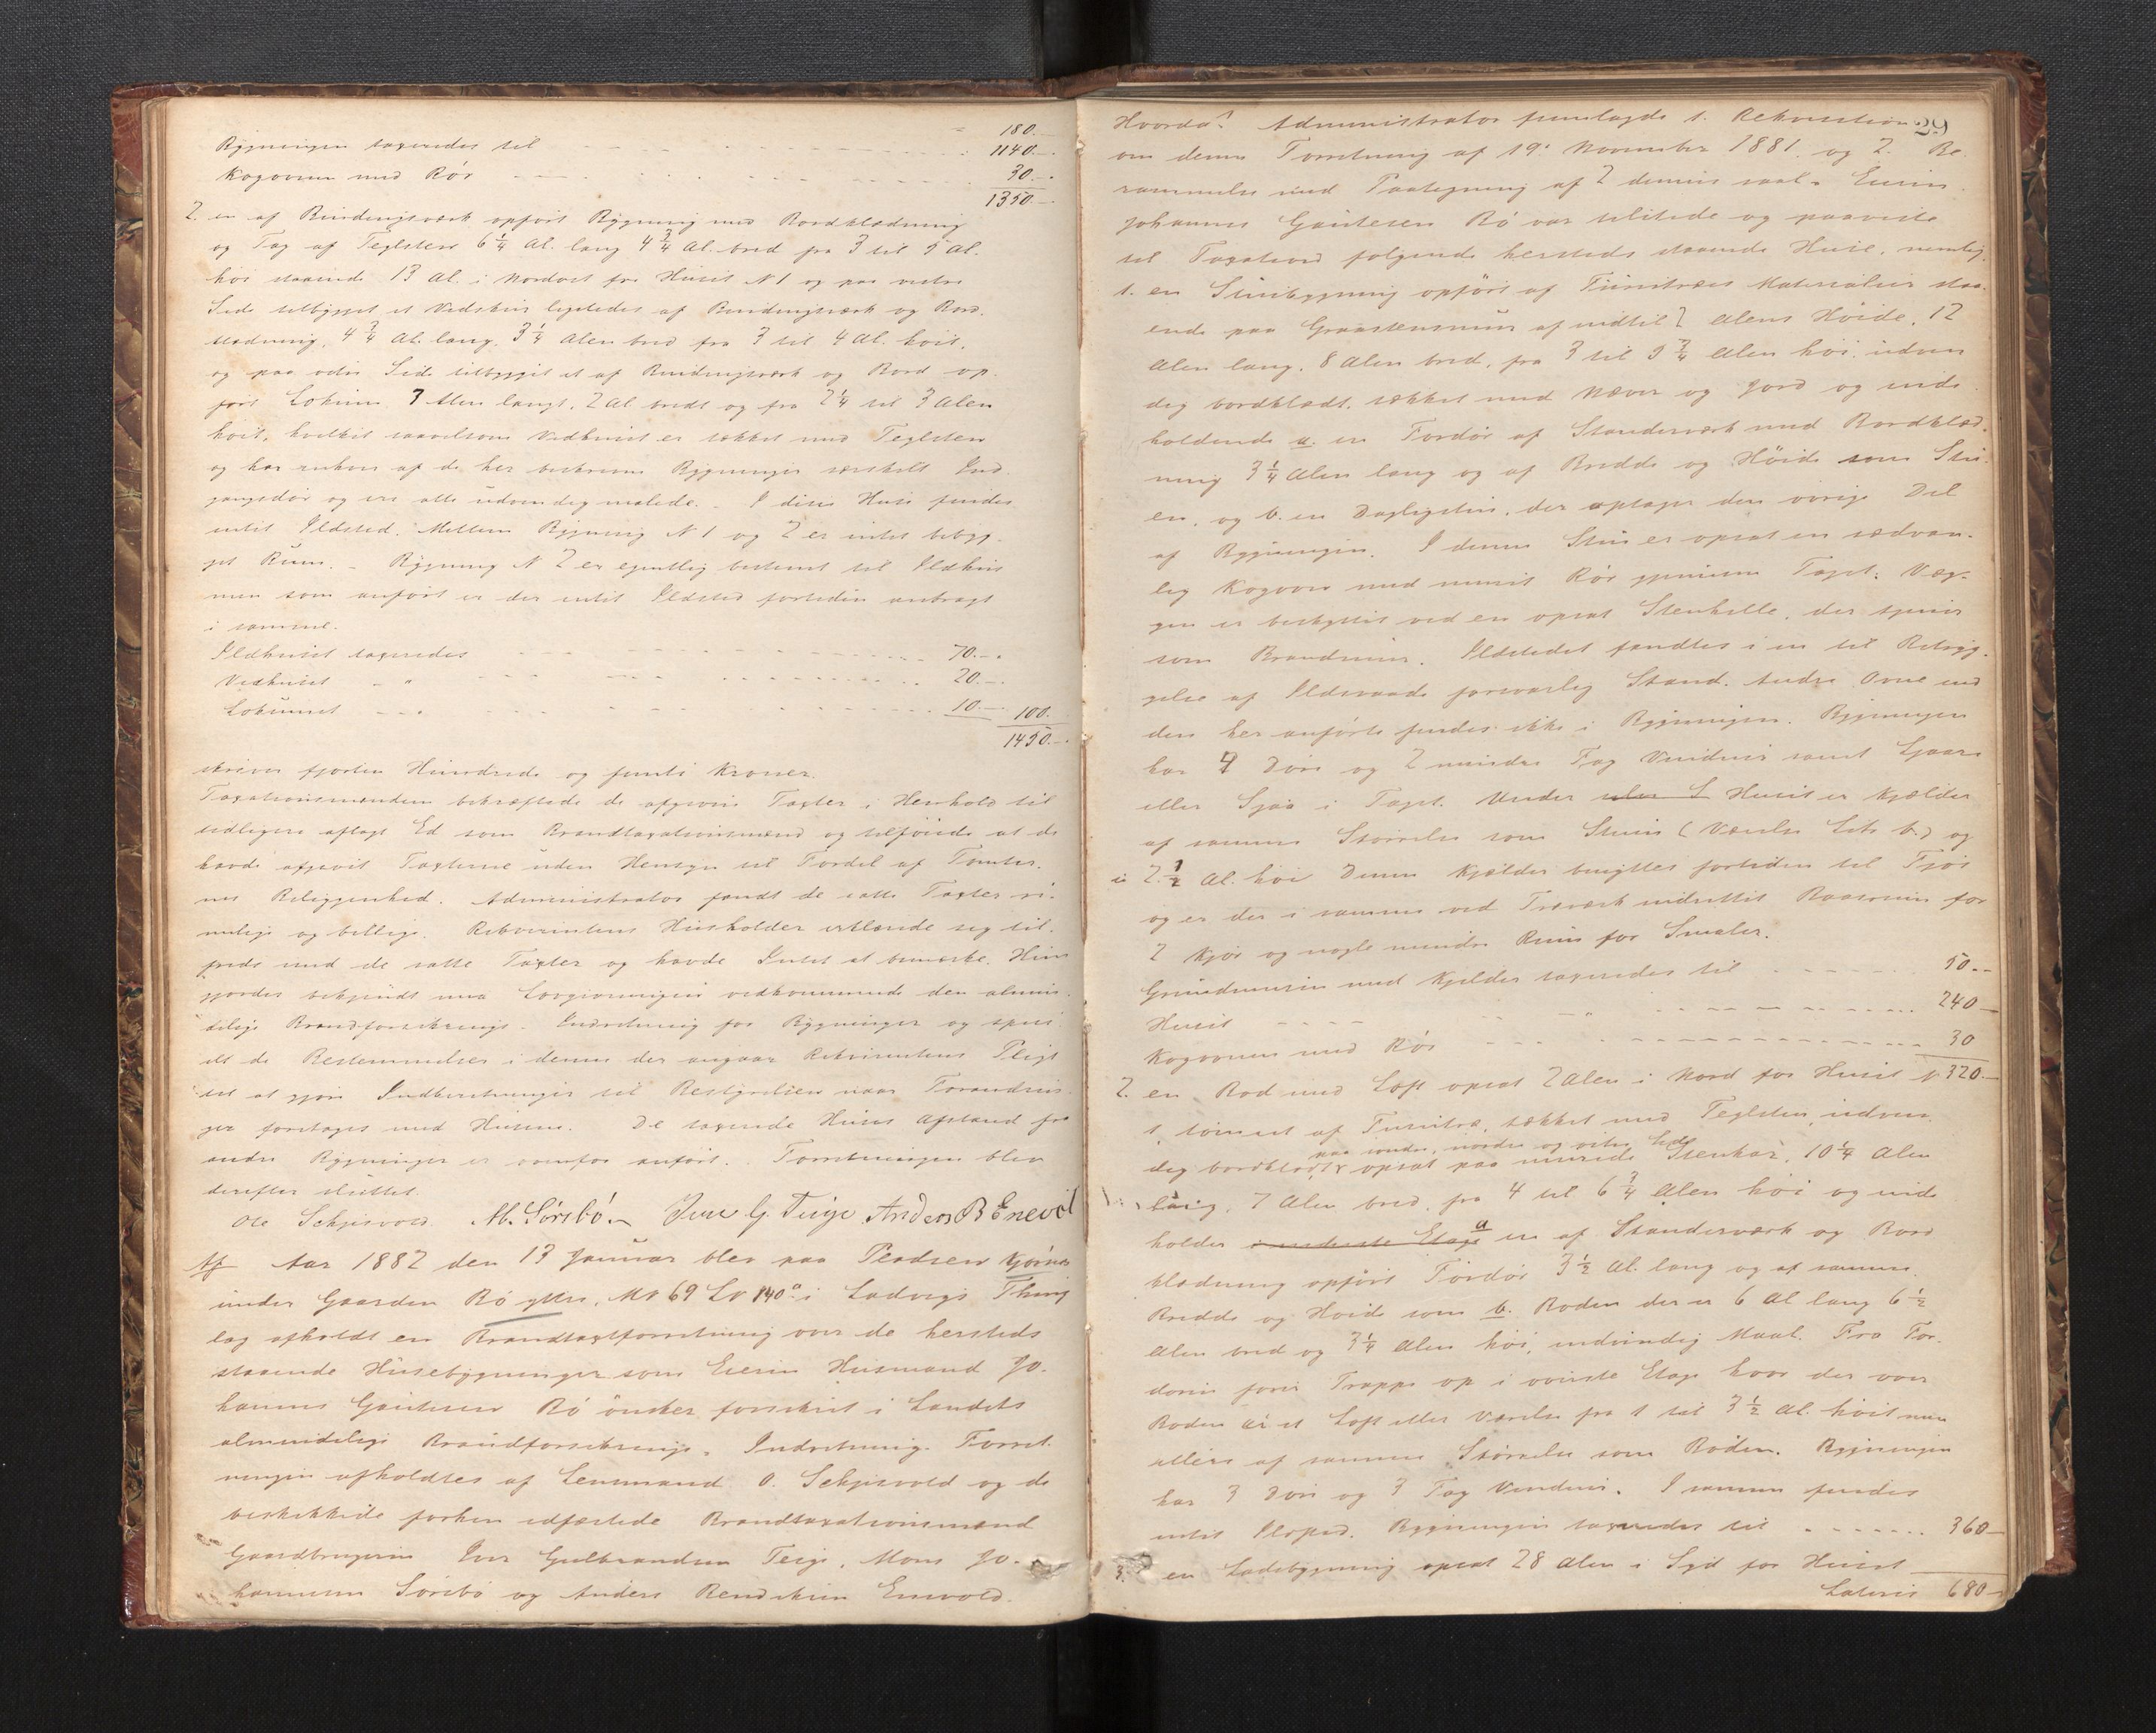 180.-
Bygningen taxeredes til - - - 1140.-.
Kogovnen med Rör - - - 30.-.
1350.-.
2. en af Bindingsværk opfört Bygning med Bordklædning
og Tag af Teglsten 6 1/4 Al. lang 4 3/4 Al. bred fra 3 til 5 Al.
höi staaende 13 Al. i Nordost for Huset N 1 og paa vestre
Side tilbygget et Vedskur ligeledes af Bindingsværk og Bord-
klædning, 4 3/4 Al. lang, 3 1/4 Alen bred fra 3 til 4 Al. höit,
og paa östre Side tilbygget et af Bindingsværk og Bord op-
fört Lokum 3 Alen langt, 2 Al bredt og fra 2 1/4 til 3 Alen
höit, hvilket saavelsom Vedhuset er tækket med Teglsten
og har enhver af de her beskrevne Bygninger særskilt Ind-
gangsdör og ere alle udvendig malede. - I disse Huse findes
intet Ildsted. Mellem Bygning N 1 og 2 er intet bebyg-
get Rum. - Bygning N 2 er egentlig bestemt til Ildhus
men som anfört er der intet Ildsted fortiden anbragt
i samme.
Ildhuset taxeredes - - - 70.-.
Vedhuset - " - - - 20.-.
Lokumet - - - 10.-. 100.
1450.-.
skriver fjorten Hundrede og femti Kroner.
Taxationsmændene bekræftede de afgivne Taxter i Henhold til
tidligere aflagt Ed som Brandtaxationsmænd og tilföiede at de
havde afgivet Taxterne uden Hensyn til Fordel af Tomter-
nes Beliggenhed. Administrator fandt de satte Taxter ri-
melige og billige. Rekvirentens Husholder erklærede sig til-
freds med de satte Taxter og havde Intet at bemærke. Hun
gjordes bekjendt med Lovgivningen vedkommende den almin-
delige Brandforsikrings-Indretning for Bygninger og speci-
elt de Bestemmelser i denne der angaar Rekvirentens Pligt
til at gjöre Indberetninger til Bestyrelsen naar Forandrin-
ger foretages med Husene. De taxerede Huses Afstand fra
andre Bygninger er ovenfor anfört. Forretningen blev
derefter sluttet.
Ole Schjesvold M. Sörebö Iver G. Teige Anders B Enevol
Aar 1882 den 13 Januar blev paa Pladsen Kjörnes
under Gaarden Bö yttre, M No 69 L No 140a i Ladvigs Thing
lag afholdt en Brandtaxtforretning over de hersteds
staaende Husebygninger som Eieren Husmand Jo-
hannes Gautesen Bö önsker forsikret i Landets
almindelige Brandforsikrings-Indretning. Forret-
ningen afholdtes af Lensmand O. Schjesvold og de
beskikkede forhen edfæstede Brandtaxationsmænd
Gaardbrugerne Iver Gulbrandsen Teige, Mons Jo-
hannesen Sörebö og Anders Bendiksen Enevold.
29
Hvorda? Administrator fremlagde 1. Rekvisition
om denne Forretning af 19. November 1881 og 2. Be-
rammelse med Paategning af 2 dennes saal. Eieren
Johannes Gautesen Bö var tilstede og paaviste
til Taxation fölgende hersteds staaende Huse, nemlig
1. en Stuebygning opfört af Furutræes Materialier staa-
ende paa Graastensmur af indtil 2 Alens Höide, 12
Alen lang, 8 Alen bred, fra 3 til 5 3/4 Alen höi, udven
dig bordklædt, tækket med Næver og Jord og inde
holdende a. en Fordör af Standerværk med Bordklæd-
ning 3 1/4 Alen lang og af Bredde og Höide som Stu-
en, og b. en Dagligstue, der optager den övrige Del
af Bygningen. I denne Stue er opsat en sædvan-
lig Kogovn med muret Rör gjennem Taget. Væg-
gen er beskyttet ved en opsat Stenhelle, der tjener
som Brandmur. Ildstedet fandtes i en til Betryg-
gelse af Ildsvaade forsvarlig Stand. Andre Ovne end
den her anförte findes ikke i Bygningen. Bygningen
har 4 Döre og 2 mindre Fag Vinduer samt Ljaare
eller Sjaa i Taget. Under Huset er Kjælder
af samme Störrelse som Stuen (Værelse Litr b.) og
2 1/2 Al. höi Denne Kjælder benyttes fortiden til Fjös
og er der i samme ved Træværk indrettet Baaserum for
2 Kjör og nogle mindre Rum for Smaler.
Grundmuren med Kjelder taxeredes til - - - 50.-
Huset - - - 240 -
Kogovnen med Rör - - - 30
2. en Bod med Loft opsat 2 Alen i Nord for Huset N 320.-
1, tömret af Furutræ, tækket med Teglsten, udven-
paa söndre, nordre og östre Side
dig bordklædt, opsat paa murede Stenkar, 10 1/4 Alen
lang, 7 Alen bred, fra 4 til 6 3/4 Alen höi og inde
holder i nederste Etage a en af Standerværk og Bord
klædning opfört Fordör 3 1/2 Al. lang og af samme
Bredde og Höide som b. Boden der er 6 Al lang 6 1/2
Alen bred og 3 1/4 Alen höi, indvendig Maal. Fra For-
dören förer Trappe op i överste Etage hvor der over
Boden er et Loft eller Værelse fra 1 til 3 1/2 Al. höit men
ellers af samme Störrelse som Boden. Bygningen
har 3 Döre og 3 Fag Vinduer. I samme findes
intet Ildsted. Bygningen taxeredes til - - - 360 -
3. en Ladebygning opsat 28 Alen i Syd for Huset
Lateris 680 -